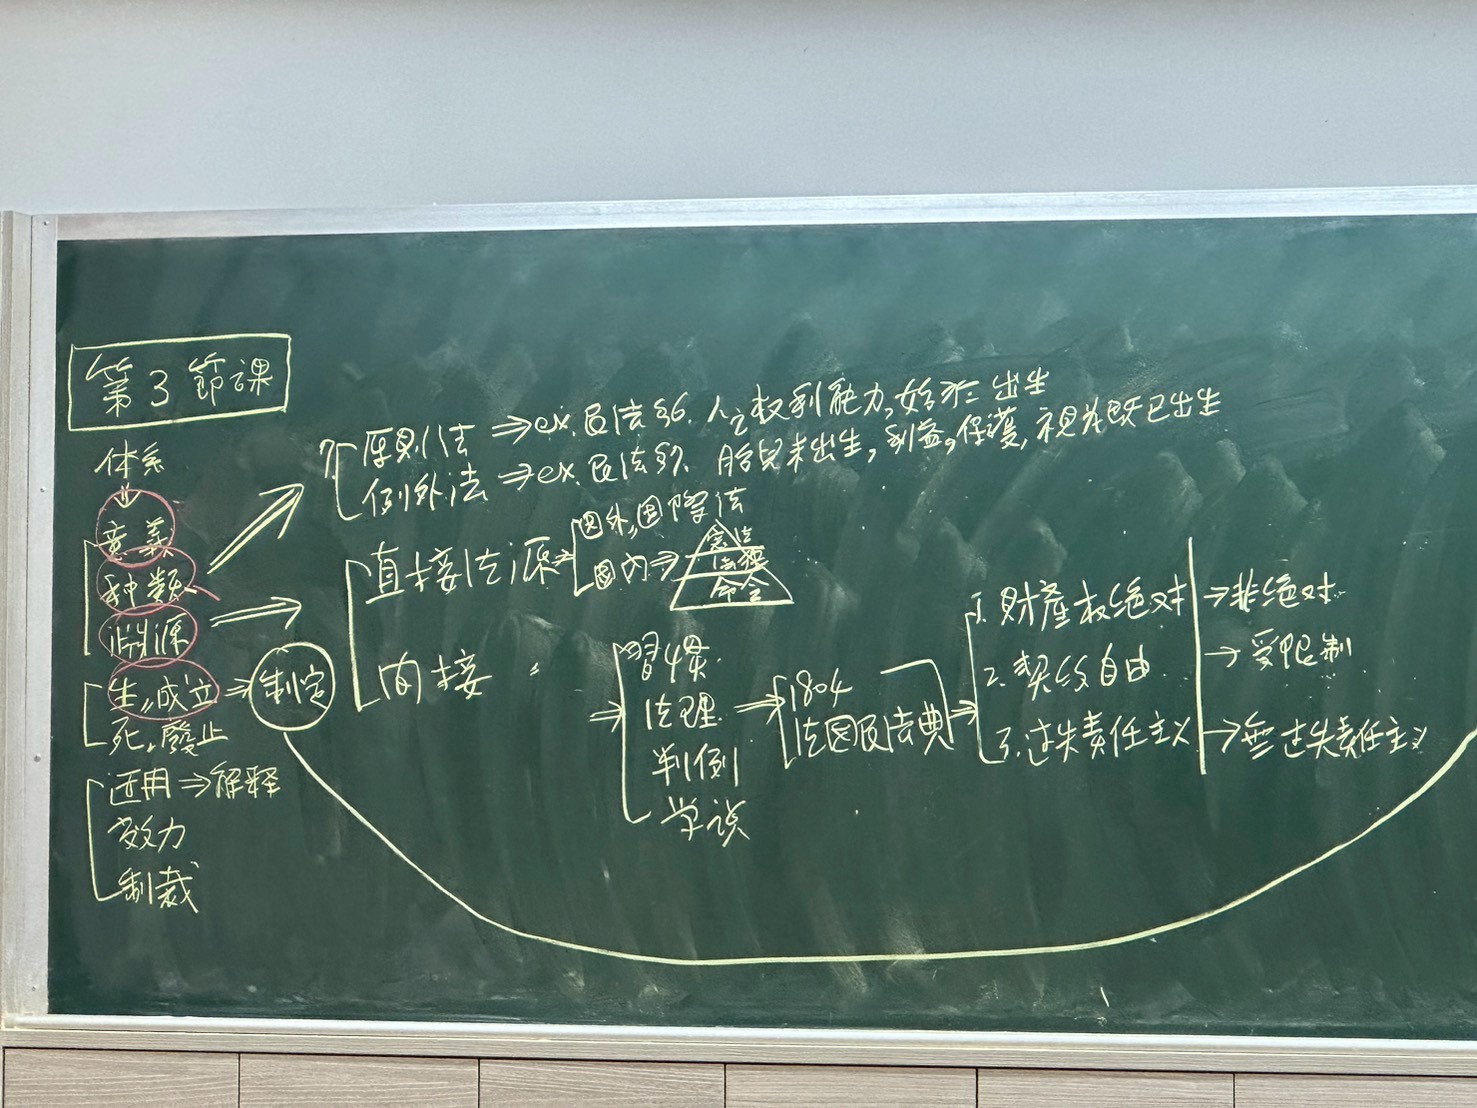 第3節課
体系
意義
種類
淵源
生,成立⇒制定
死,廢止
适用⇒解釋
效力
制裁
原則法⇒ex.民法§6. 人之權利能力,始於出生
例外法⇒ex.民法§7. 胎兒未出生,利益,保護,視為既已出生
直接法源
國外,國際法
國內⇒
憲法
法律
命令
間接 〃
習慣
法理
判例
学说
1804
法國民法典
1. 財產权絕对→非絕对
2. 契约自由→受限制
3. 过失責任主义→無过失責任主义